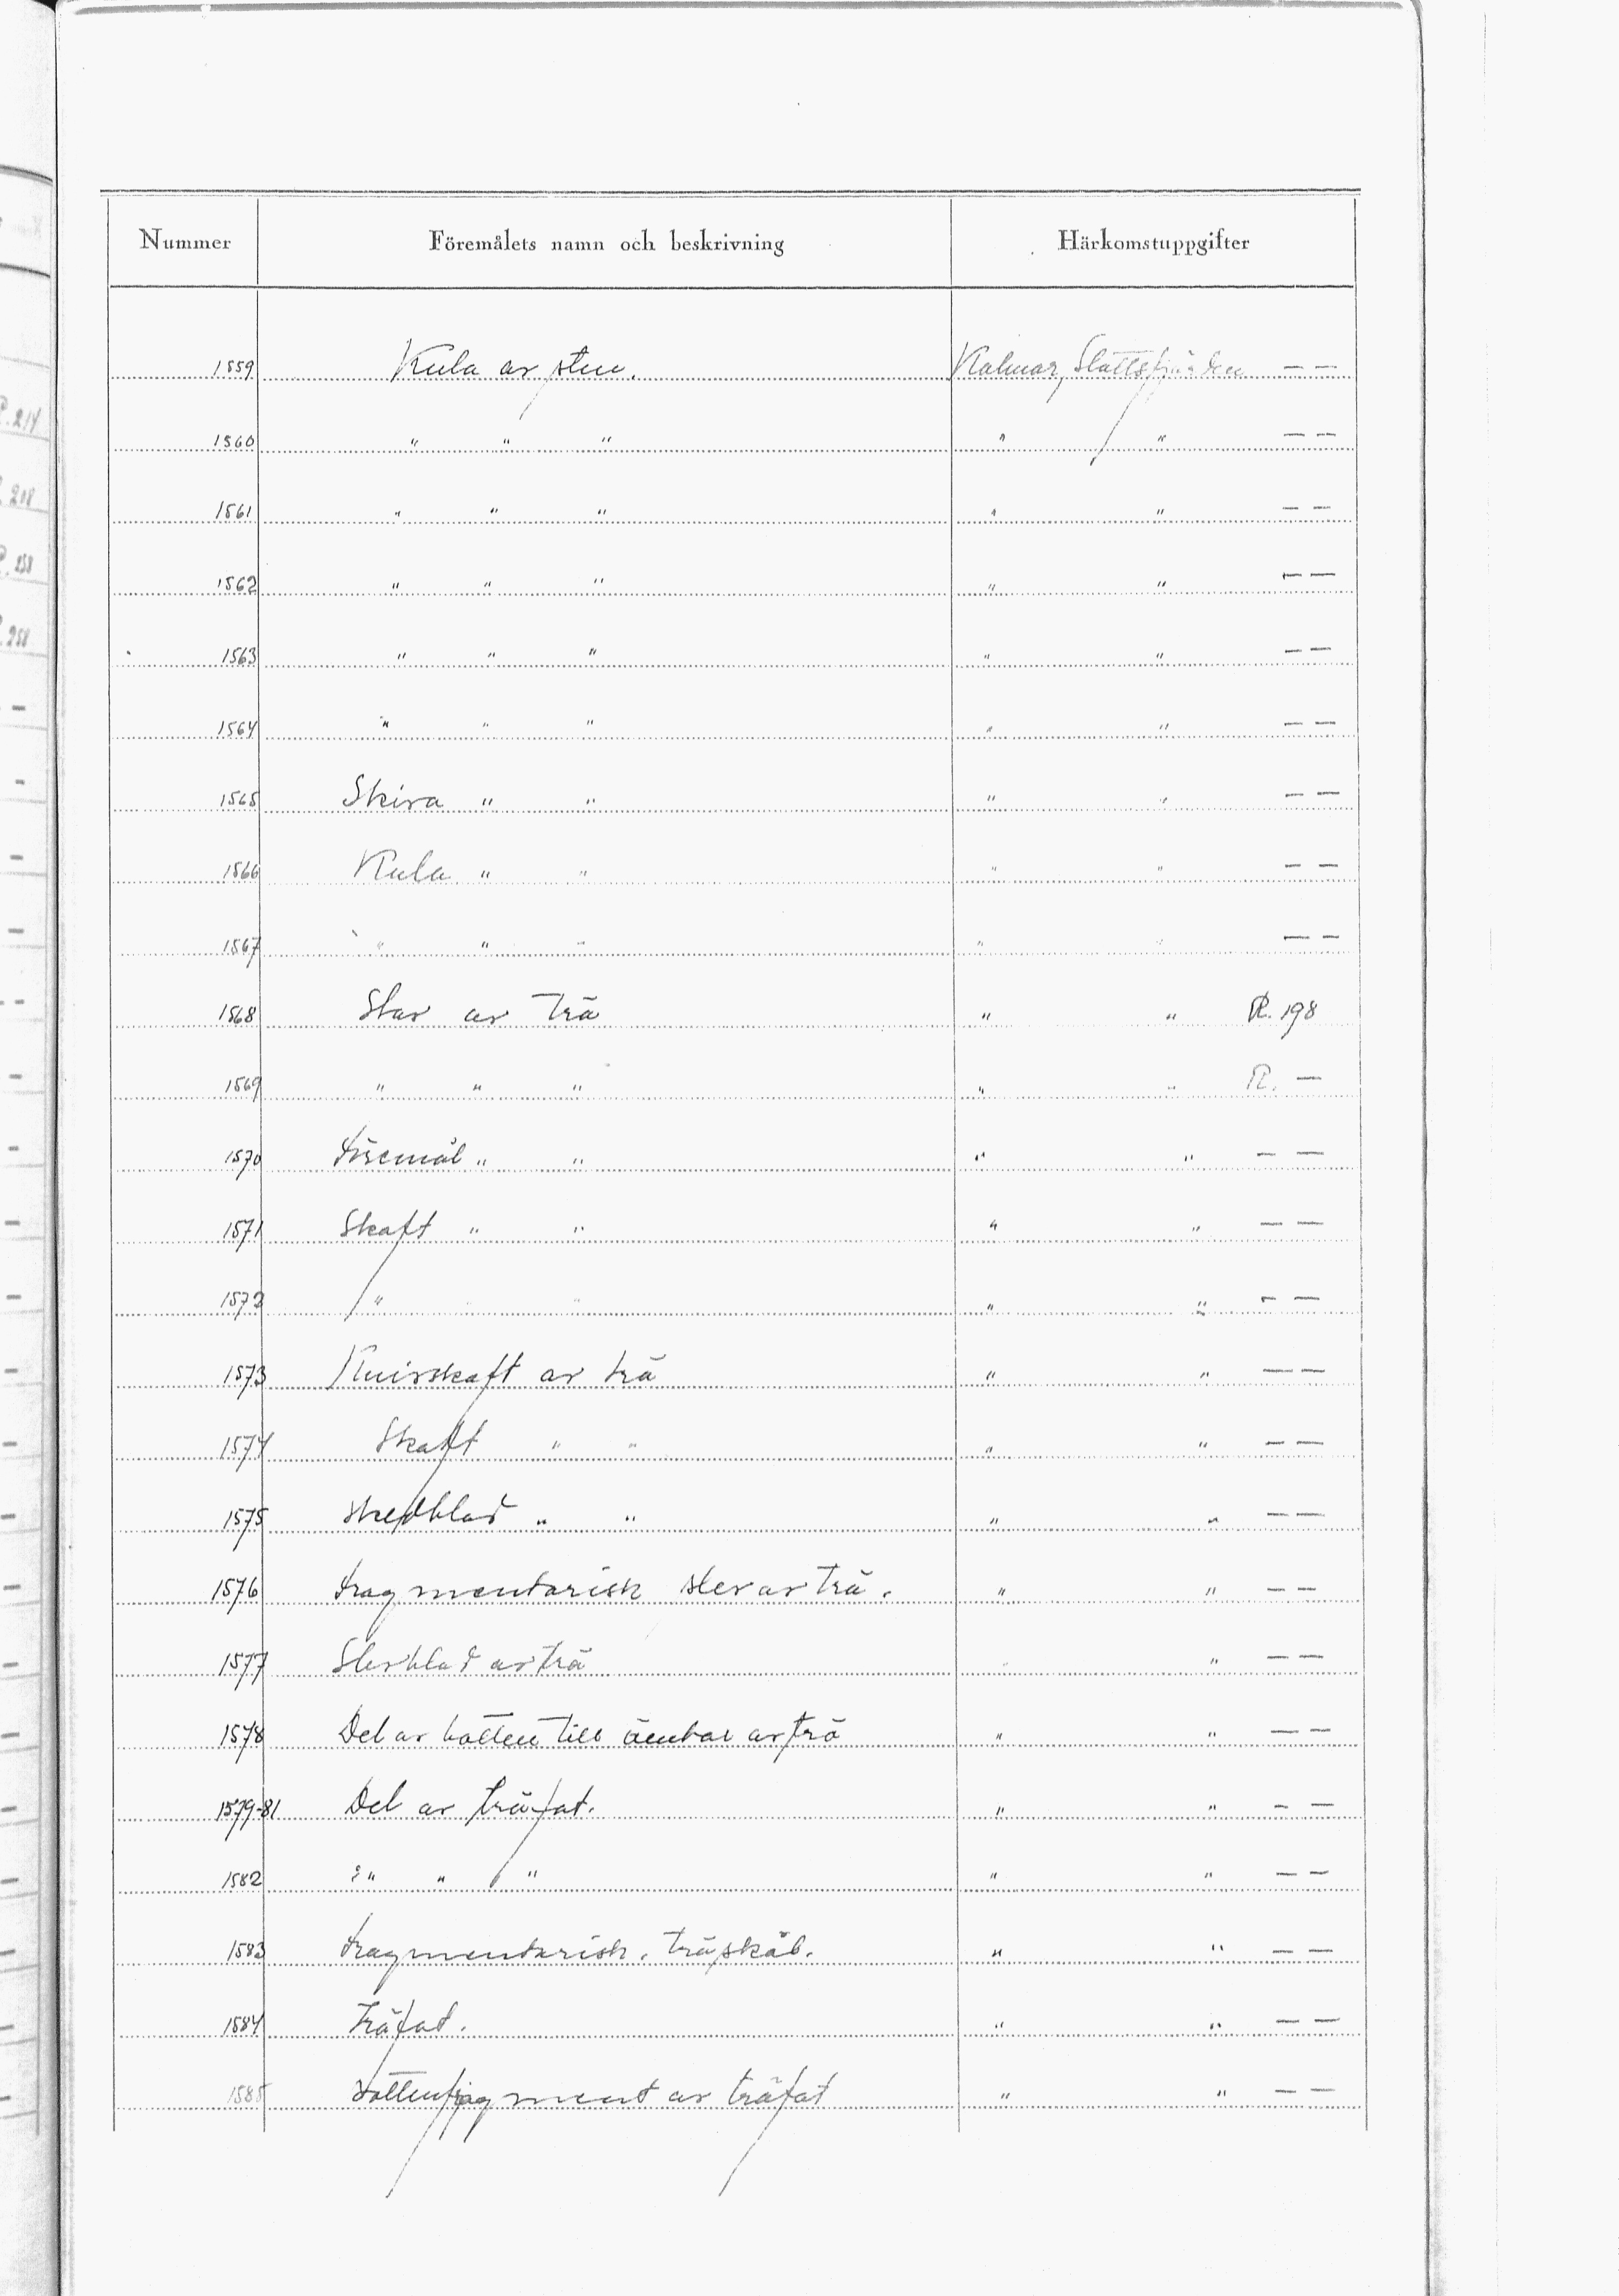 Nummer Föremålets namn och beskrivning Härkomstuppgifter
1559 Kula av sten. Kalmar, Slottsfjärden — —
P. 214
1560 " " " " " — —
218
1561 " " " " " — —
P. 258
1562 " " " " " — —
258
1563 " " " " " — —
1564 " " " " " — —
1565 Skiva " " " " — —
1566 Kula " " " " — —
1567 " " " " " — —
1568 Stav av trä " " R. 198
1569 " " " " " R. —
1570 Föremål " " " " — —
1571 Skaft " " " " — —
1572 " " " " " — —
1573 Knivskaft av trä " " — —
1574 Skaft " " " " — —
1575 skedblad " " " " — —
1576 Fragmentarisk slev av trä. " " — —
1577 Slevblad av trä " " — —
1578 Del av botten till ämbar av trä " " — —
1579-81 Del av träfat. " " — —
1582 " " " " " — —
1583 Fragmentarisk. träskål. " " — —
1584 Träfat. " " — —
1585 Bottenfragment av träfat " " — —